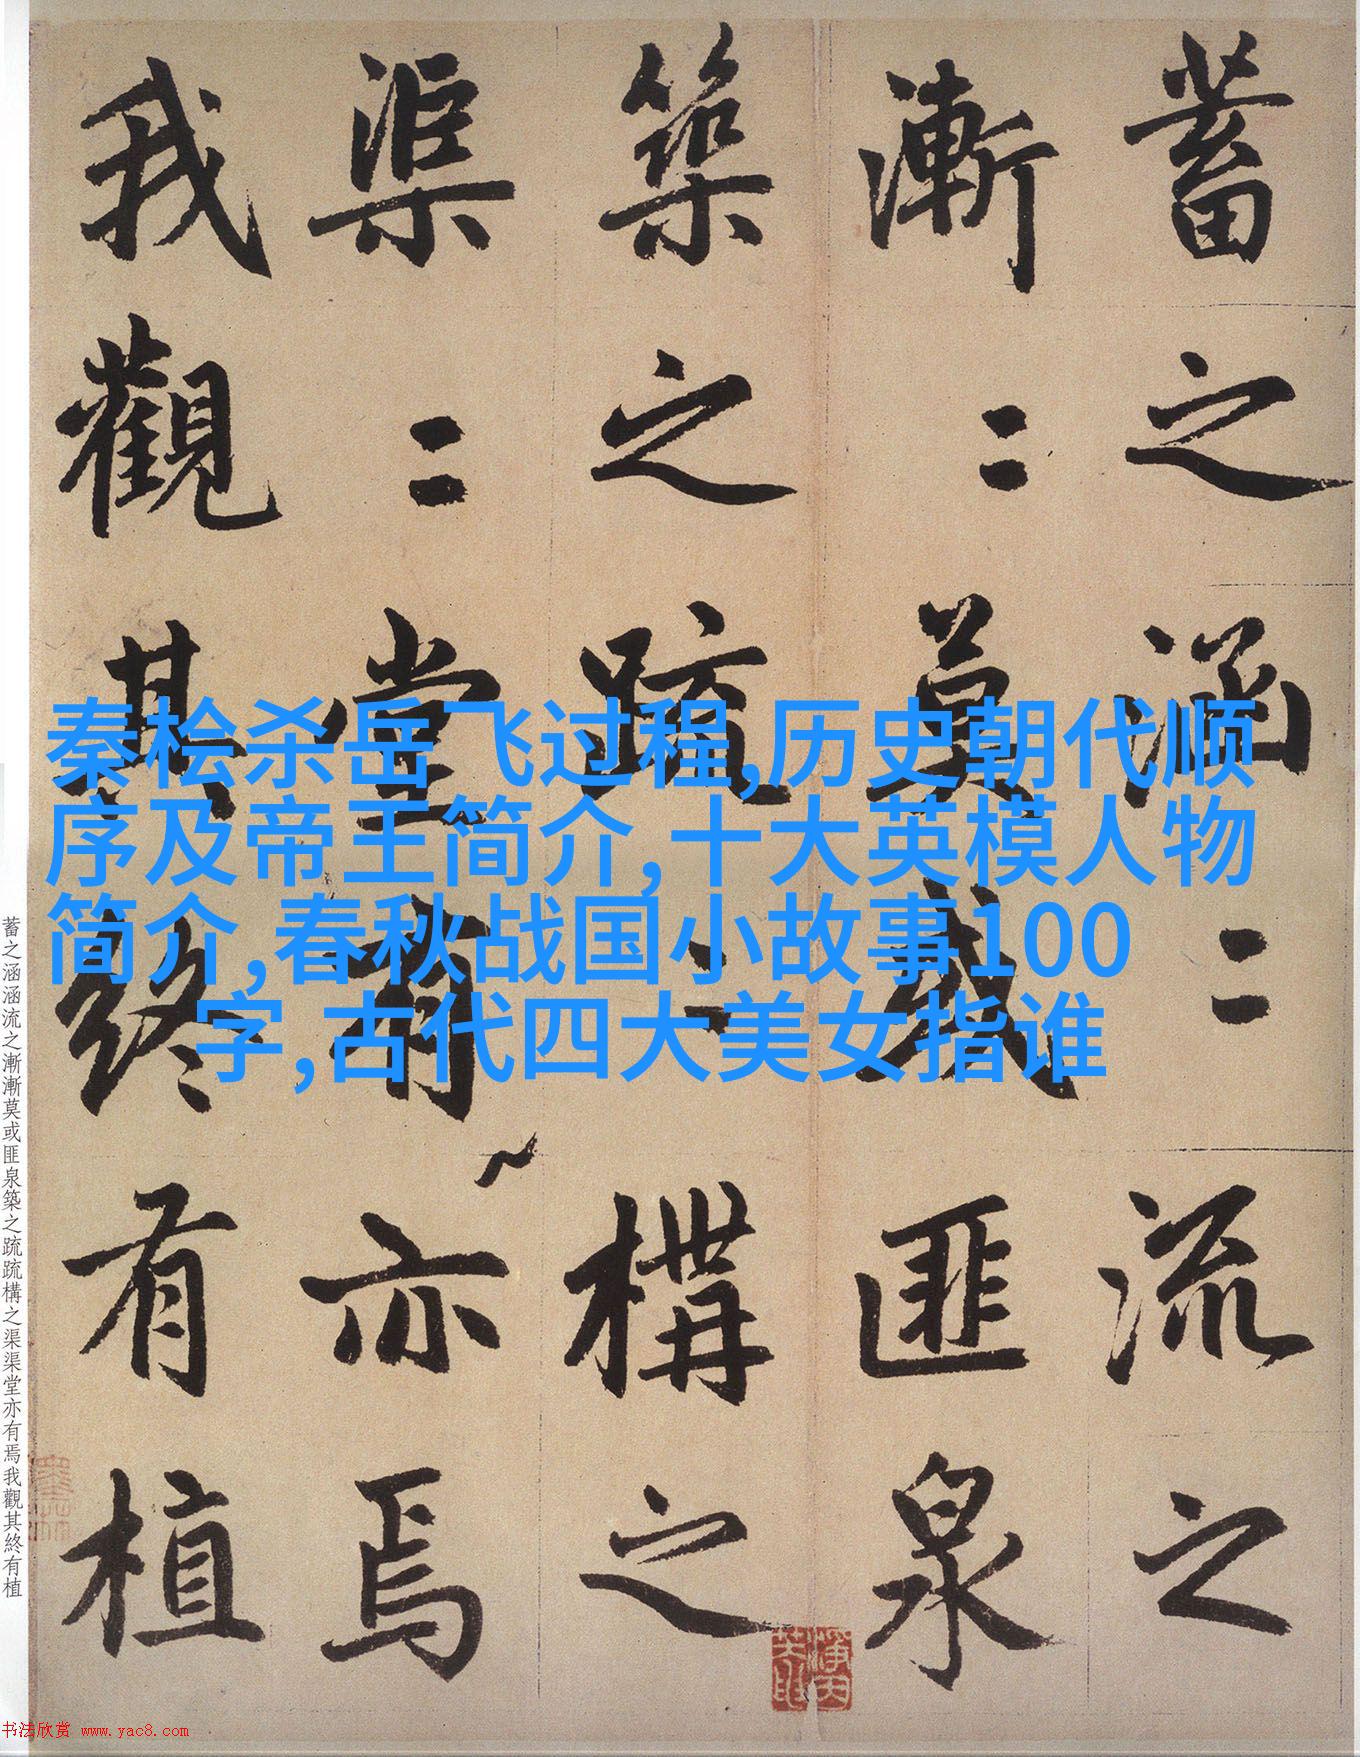 蓄之涵〻流之
漸〻莫或匪泉
築之疏〻構之
渠〻堂有亦焉
我觀其終有植
秦桧杀岳飞过程,历史朝代顺
序及帝王简介,十大英模人物
简介,春秋战国小故事100
字,古代四大美女指谁
蓄之涵涵流之漸漸莫或匪泉築之疏疏構之渠渠堂亦有焉我觀其終有植
书法欣赏 www.yac8.com